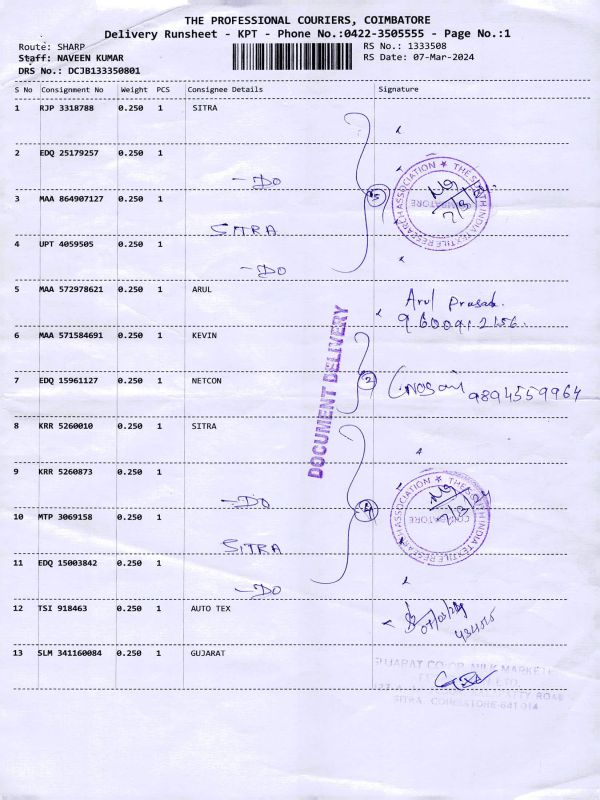 THE PROFESSIONAL COURIERS, COIMBATORE
Delivery Runsheet - KPT - Phone No.:0422-3505555 - Page No.:1
Route: SHARP
RS No.: 1333508
Staff: NAVEEN KUMAR
RS Date: 07-Mar-2024
DRS No.: DCJB133350801
S No Consignment No Weight PCS Consignee Details Signature
1 RJP 3318788 0.250 1 SITRA
2 EDQ 25179257 0.250 1
-DO
3 MAA 864907127 0.250 1
SITRA
4 UPT 4059505 0.250 1
-DO
3
THE SOUTH INDIA TEXTILE RESEARCH ASSOCIATION
COIMBATORE
7/3/24
5 MAA 572978621 0.250 1 ARUL
Arul Prasad.
6 MAA 571584691 0.250 1 KEVIN
7 EDQ 15961127 0.250 1 NETCON
2
9894559964
DOCUMENT DELIVERY
8 KRR 5260010 0.250 1 SITRA
9 KRR 5260873 0.250 1
-DO
10 MTP 3069158 0.250 1
SITRA
11 EDQ 15003842 0.250 1
-DO
4
THE SOUTH INDIA TEXTILE RESEARCH ASSOCIATION
COIMBATORE
7/3/24
12 TSI 918463 0.250 1 AUTO TEX
07/03/24
13 SLM 341160084 0.250 1 GUJARAT
GUJARAT CO.OP. MILK MARKETING
SITRA, COIMBATORE-641 014